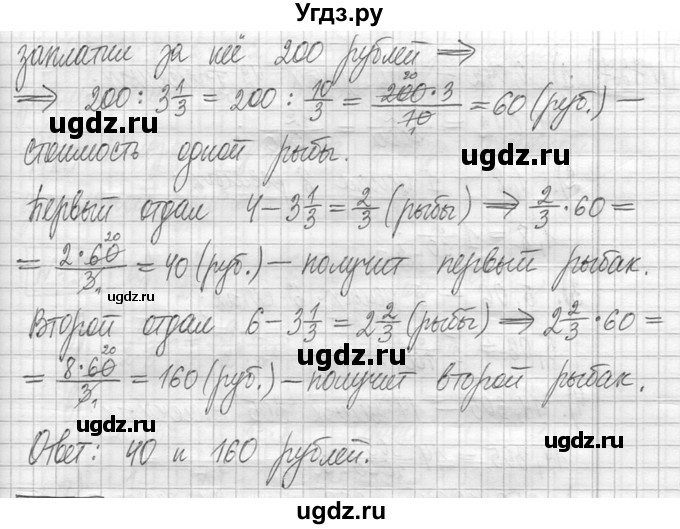 Угдз.ру
заплатил за неё 200 рублей ⇒
⇒ 200 : 3 1/3 = 200 : 10/3 = 200·3/10 = 60 (руб.) –
ugdz.ru ugdz.ru
стоимость одной рыбы.
ugdz.ru
Первый отдал 4 – 3 1/3 = 2/3 (рыбы) ⇒ 2/3 · 60 =
= 2·60/3 = 40 (руб.) – получит первый рыбак.
ugdz.ru ugdz.ru
Второй отдал 6 – 3 1/3 = 2 2/3 (рыбы) ⇒ 2 2/3 · 60 =
ugdz.ru
= 8·60/3 = 160 (руб.) – получит второй рыбак.
ugdz.ru ugdz.ru
Ответ: 40 и 160 рублей.
ugdz.ru
ugdz.ru